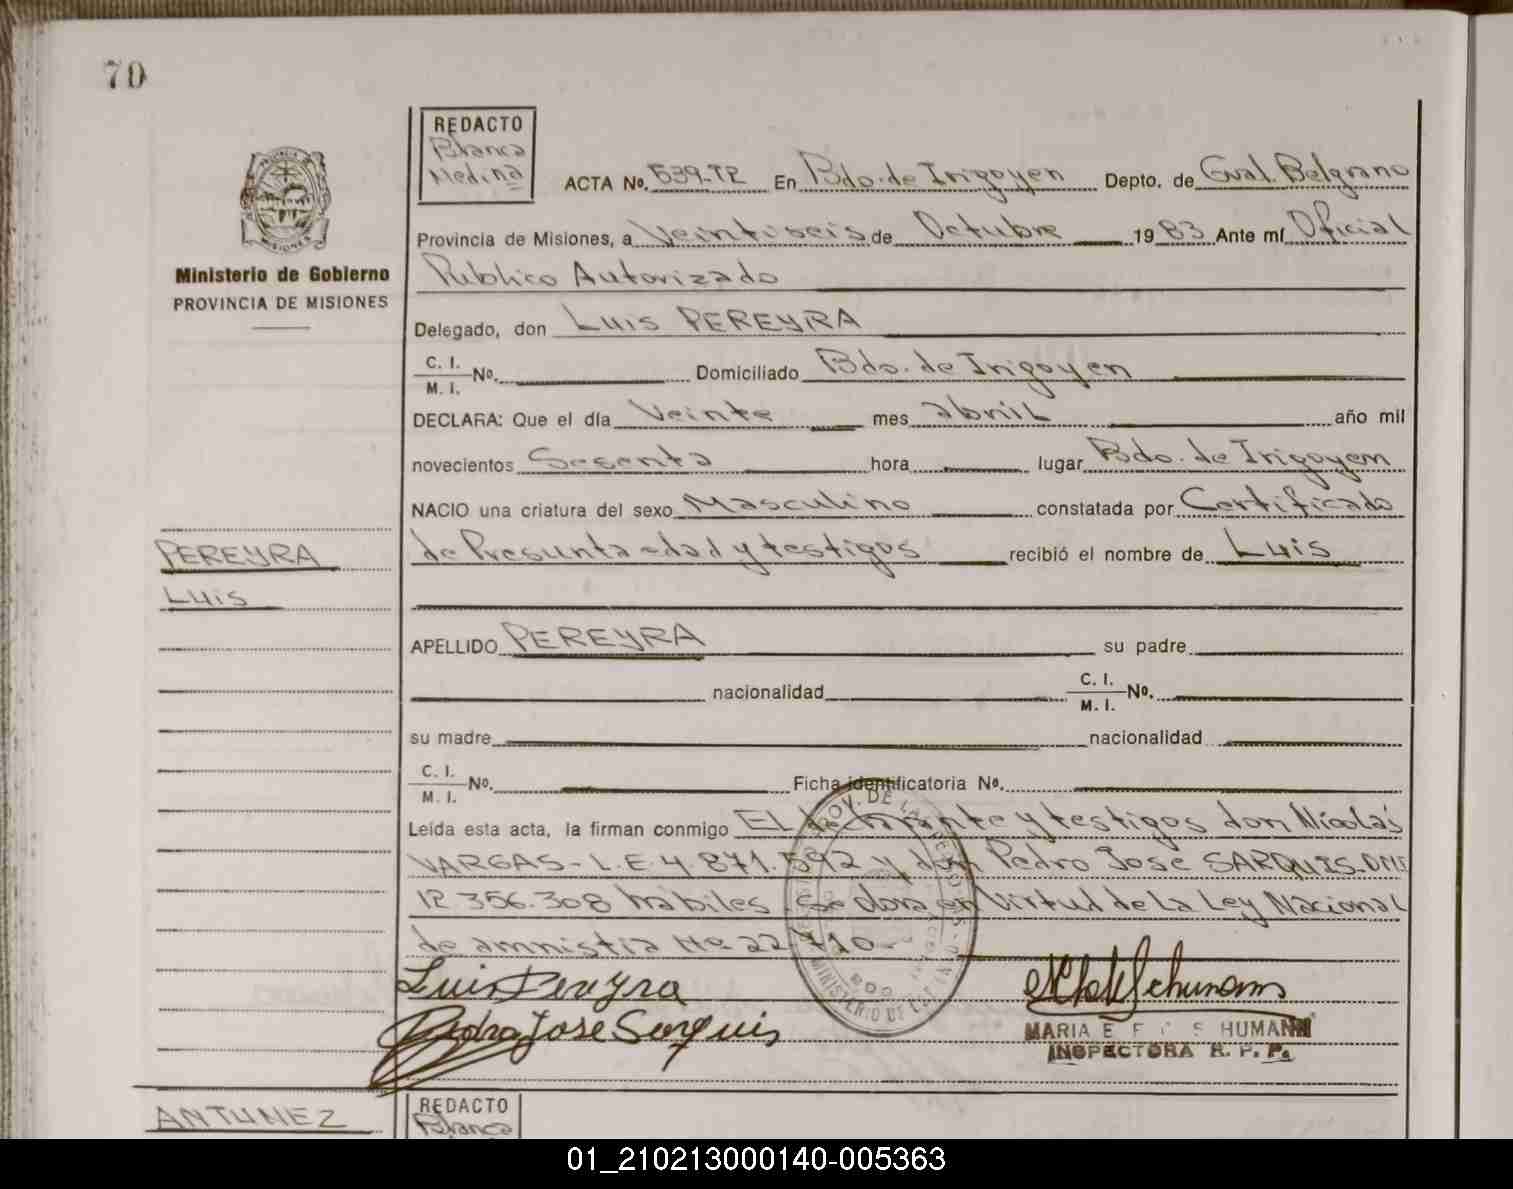 70
REDACTO
Blanca
Medina
ACTA No. 539-T2 En Bdo. de Irigoyen Depto. de Gral. Belgrano
Provincia de Misiones, a Veintiseis de Octubre 1983 Ante mí Oficial
Ministerio de Gobierno
PROVINCIA DE MISIONES
Publico Autorizado
Delegado, don Luis PEREYRA
C. I.
M. I. No. Domiciliado Bdo. de Irigoyen
DECLARA: Que el día Veinte mes abril año mil
novecientos Sesenta hora lugar Bdo. de Irigoyen
NACIO una criatura del sexo Masculino constatada por Certificado
PEREYRA
Luis
de Presunta edad y testigos recibió el nombre de Luis
APELLIDO PEREYRA su padre
nacionalidad C. I.
M. I. No.
su madre nacionalidad
C. I.
M. I. No. Ficha identificatoria No.
Leída esta acta, la firman conmigo EL y testigos don Nicolás
VARGAS - L.E. 4.871.592 y don Pedro Jose SARQUIS-DNI
12.356.308 habiles. en Virtud de La Ley Nacional
de amnistia No 22710-
Luis Pereyra
Pedro Jose Sarquis
MARIA E SHUMANN
INSPECTORA R. P. P.
ANTUNEZ
REDACTO
Blanca
01_210213000140-005363